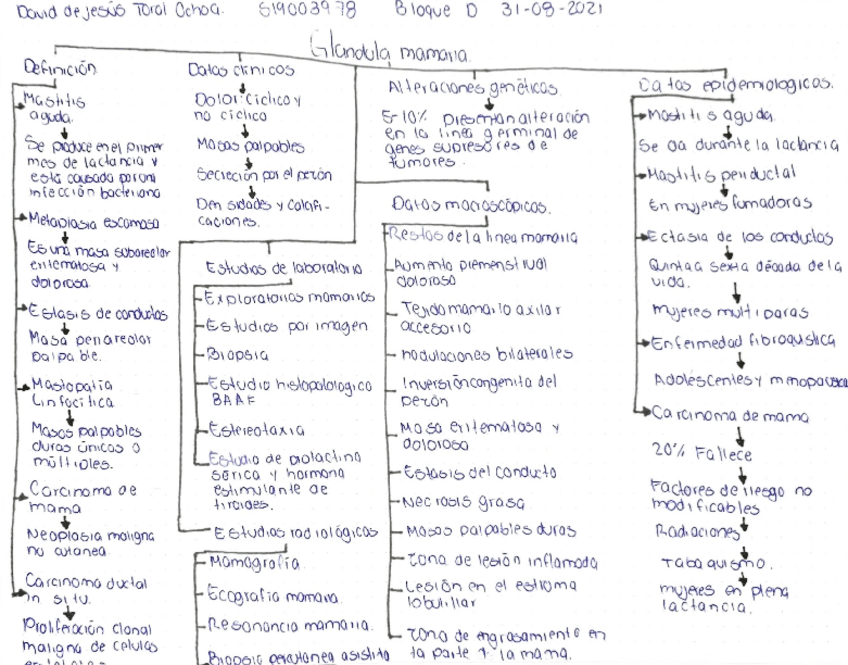 David de jesús Toral Ochoa. S19003978 Bloque D 31-08-2021
Glandula mamaria.
Definición
Mastitis
aguda.
Se produce en el primer
mes de lactancia y
esta causada por una
infección bacteriana
Metaplasia escamosa
Es una masa subareolar
eritematosa y
dolorosa
Estasis de conductos
Masa periareolar
palpable.
Mastopatia
Linfocitica
Masas palpables
duras únicas o
múltiples.
Carcinoma de
mama
Neoplasia maligna
no cutanea
Carcinoma ductal
in situ.
Proliferación clonal
maligna de celulas
Datos clinicos
Dolor: Ciclico y
no ciclico
Masas palpables
Secreción por el pezón
Densidades y calcifi-
caciones.
Estudios de laboratorio
Exploratorios mamarios
Estudios por imagen
Biopsia
Estudio histopatologico
BAAF
Estereotaxia
Estudio de prolactina
sérica y hormona
estimulante de
tiroides.
Estudios radiológicos
Mamografía.
Ecografia mamaria.
Resonancia mamaria.
Biopsia percutanea asistida
Alteraciones genéticas.
5-10% presentan alteración
en la linea germinal de
genes supresores de
tumores.
Datos macroscópicos.
Restos de la linea mamaria
Aumento premenstrual
doloroso
Tejido mamario axilar
accesorio
nodulaciones bilaterales
Inversión congenita del
pezón
Masa eritematosa y
dolorosa
Estasis del conducto
Necrosis grasa
Masas palpables duras
Zona de lesión inflamada
Lesión en el estroma
lobulillar
Zona de engrosamiento en
la parte ↑ la mama.
Datos epidemiologicos.
Mastitis aguda.
Se da durante la lactancia
Mastitis periductal
En mujeres fumadoras
Ectasia de los conductos
Quinta a sexta década de la
vida.
mujeres multiparas
Enfermedad fibroquistica
Adolescentes y menopausia
Carcinoma de mama
20% Fallece
Factores de riesgo no
modificables
Radiaciones
Tabaquismo.
mujeres en plena
lactancia.